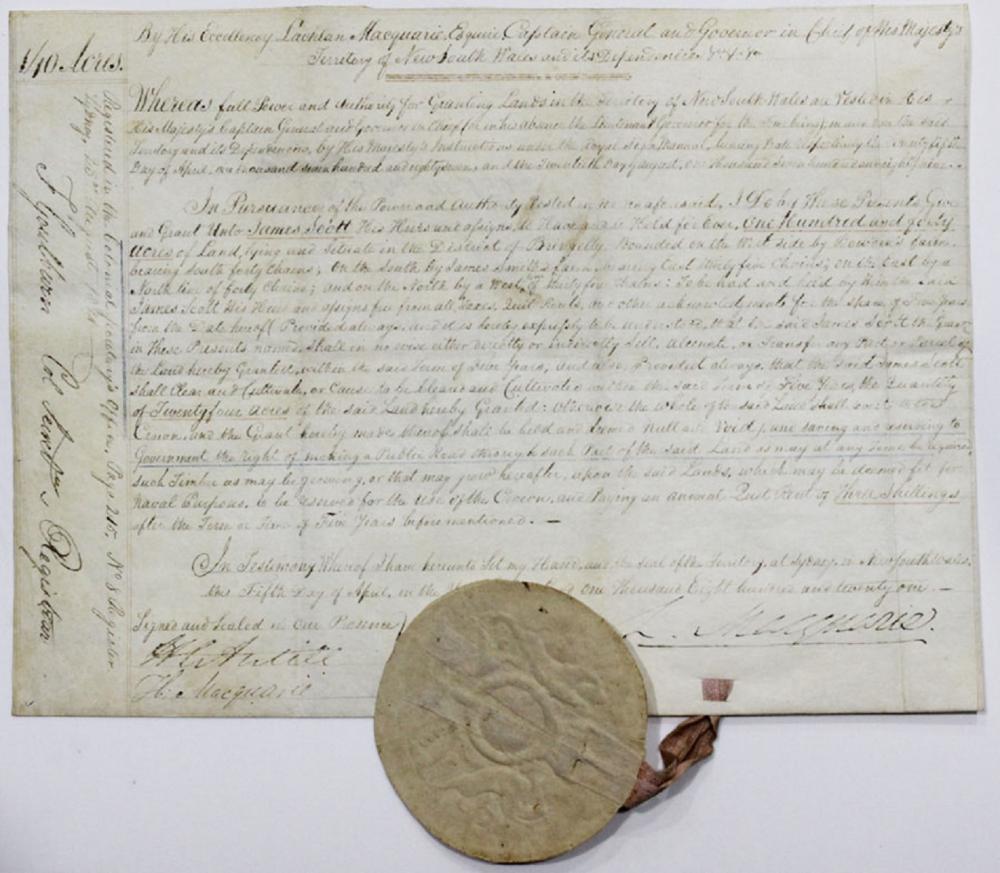 140 Acres.
By His Excellency Lachlan Macquarie, Esquire Captain General and Governor in Chief of His Majesty's
Territory of New South Wales and its Dependencies &c &c &c
Whereas full Power and Authority for Granting Lands in the Territory of New South Wales are Vested in His
His Majesty's Captain General and Governor in Chief (or in his absence the Lieutenant Governor for the time being) in and over the said
Territory and its Dependencies, by His Majesty's Instructions under the Royal Sign Manual, bearing Date respectively the Twenty fifth
Day of April, one thousand seven hundred and eighty seven, and the Twentieth Day of August, one thousand seven hundred and
In Pursuance of the Power and Authority Vested in me as aforesaid, I Do by these Presents Give
and Grant Unto James Scott His Heirs and assigns, to Have and to Hold for Ever, One Hundred and forty
Acres of Land, lying and Situate in the District of Bringelly. Bounded on the West side by Bowden's farm
bearing South forty Chains; On the South by James Smith's farm bearing East thirty five Chains; on the East by a
North line of forty Chains; and on the North by a West of thirty five Chains: To be had and held by Him the said
James Scott His Heirs and assigns free from all Taxes, Quit Rents, and other acknowledgments for the space of Five Years
from the Date hereof; Provided always, and it is hereby expressly to be understood, that he the said James Scott the Grantee
in these Presents named, shall in no wise either directly or indirectly Sell, Alienate, or Transfer any Part or Parcel of
the Land hereby Granted, within the said Term of Five Years, and also, Provided always, that the said James Scott
shall Clear and Cultivate, or Cause to be Cleared and Cultivated within the said Term of Five Years, the Quantity
of Twenty four Acres of the said Land hereby Granted: Otherwise the whole of the said Land shall revert to the
Crown, and the Grant hereby made thereof shall be held and deemed Null and Void; and saving and reserving to
Government the Right of making a Public Road through such Part of the said Land as may at any Time be required,
such Timber as may be growing, or that may grow hereafter, upon the said Lands, which may be deemed fit for
Naval Purposes, to be reserved for the use of the Crown, and Paying an annual Quit Rent of Three Shillings
after the Term or Time of Five Years before mentioned. —
In Testimony Whereof I have hereunto Set my Hand, and the Seal of the Territory, at Sydney, in New South Wales,
this Fifth Day of April, in the one Thousand Eight hundred and twenty one. —
Signed and Sealed in Our Presence
L. Macquarie.
H. C. Antill
H. Macquarie
Registered in the Colonial Secretary's Office, Page 215, No. 8 Register
August
F. Goulburn Col. Secretary & Registrar